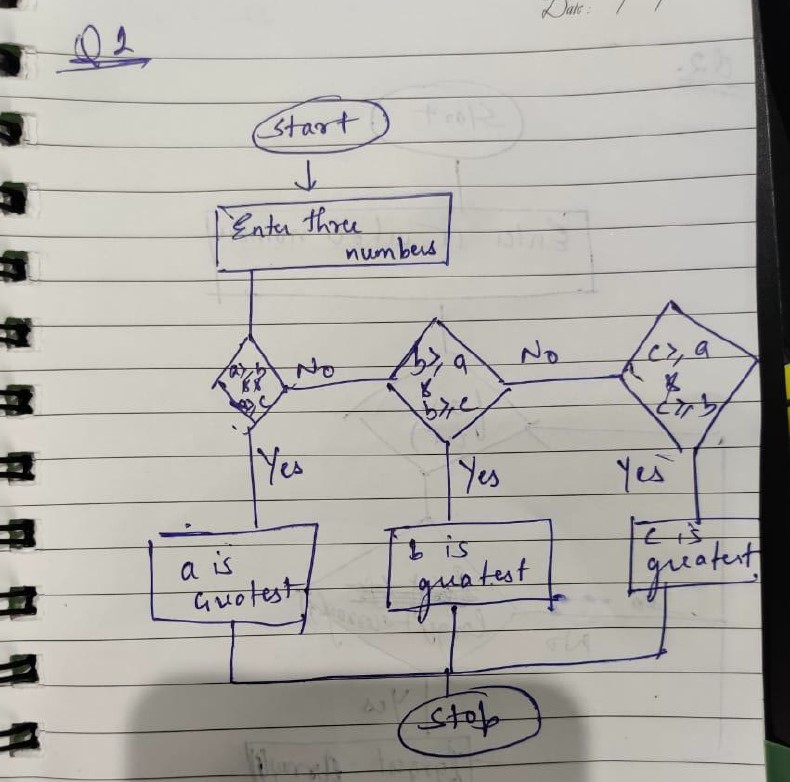 Date:
Q1
Start
Enter three
numbers
a≥b
&&
a≥c
No
b≥a
&
b≥c
No
c≥a
&
c≥b
Yes
Yes
Yes
a is
Greatest
b is
greatest
c is
greatest
Stop